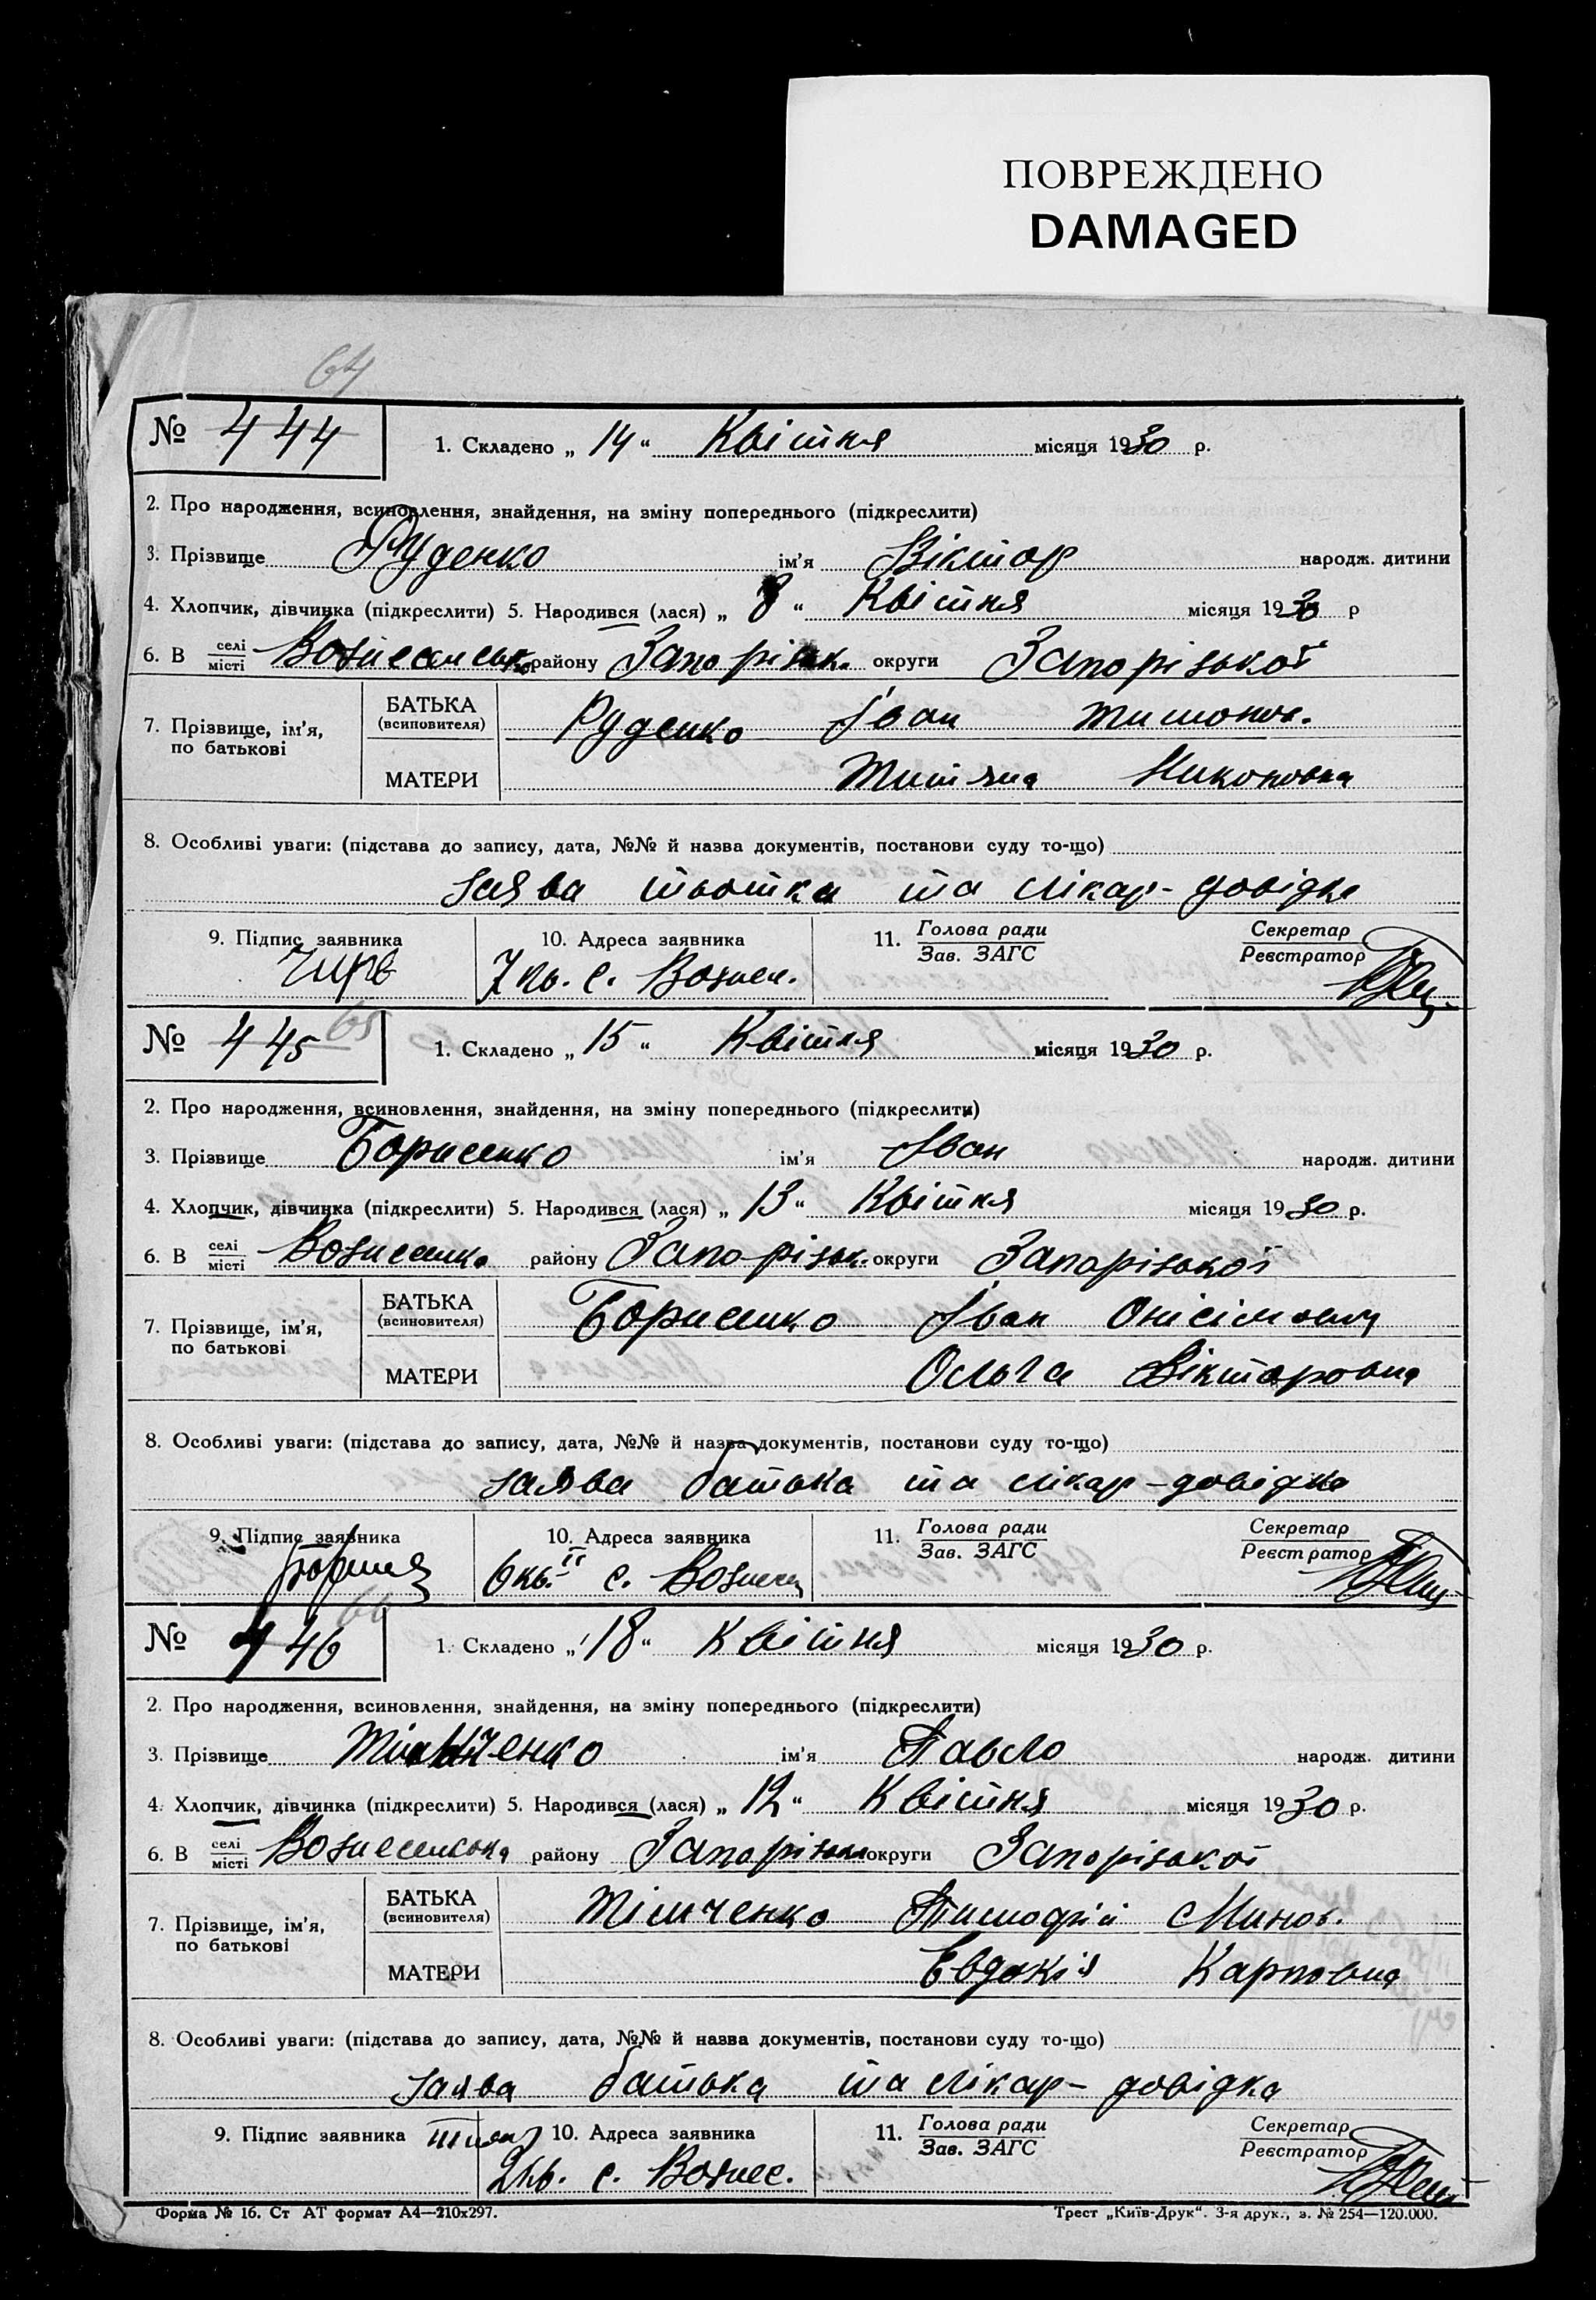 ПОВРЕЖДЕНО
DAMAGED
64
№ 444 1. Складено „ 14 “ Квітня місяця 1930 р.
2. Про народження, всиновлення, знайдення, на зміну попереднього (підкреслити)
3. Прізвище Руденко ім'я Віктор народж. дитини
4. Хлопчик, дівчинка (підкреслити) 5. Народився (лася) „ 8 “ Квітня місяця 1930 р
6. В селі/місті району Запорізьк. округи Запорізької
7. Прізвище, ім'я, по батькові
БАТЬКА (всиновителя) Руденко Іван Тимонов.
МАТЕРИ Никоновна
8. Особливі уваги: (підстава до запису, дата, №№ й назва документів, постанови суду то-що)
заява тьотки та лікар-довідка
9. Підпис заявника 10. Адреса заявника 11. Голова ради/Зав. ЗАГС Секретар/Реєстратор
7 кв. с. Вознес.
№ 445 65 1. Складено „ 15 “ Квітня місяця 1930 р.
2. Про народження, всиновлення, знайдення, на зміну попереднього (підкреслити)
3. Прізвище Борисенко ім'я Іван народж. дитини
4. Хлопчик, дівчинка (підкреслити) 5. Народився (лася) „ 13 “ Квітня місяця 1930 р.
6. В селі/місті Вознесенка району Запорізьк. округи Запорізької
7. Прізвище, ім'я, по батькові
БАТЬКА (всиновителя) Борисенко Іван Онісімович
МАТЕРИ Ольга Вікторовна
8. Особливі уваги: (підстава до запису, дата, №№ й назва документів, постанови суду то-що)
заява батька та лікар-довідка
9. Підпис заявника 10. Адреса заявника 11. Голова ради/Зав. ЗАГС Секретар/Реєстратор
6 кв. с.
№ 446 66 1. Складено „ 18 “ Квітня місяця 1930 р.
2. Про народження, всиновлення, знайдення, на зміну попереднього (підкреслити)
3. Прізвище ім'я Павло народж. дитини
4. Хлопчик, дівчинка (підкреслити) 5. Народився (лася) „ 12 “ Квітня місяця 1930 р.
6. В селі/місті Вознесенська району округи Запорізької
7. Прізвище, ім'я, по батькові
БАТЬКА (всиновителя) Тімченко Тимофій Минов.
МАТЕРИ Евдокія Карповна
8. Особливі уваги: (підстава до запису, дата, №№ й назва документів, постанови суду то-що)
заява батька та лікар-довідка
9. Підпис заявника 10. Адреса заявника 11. Голова ради/Зав. ЗАГС Секретар/Реєстратор
2 кв. с. Вознес.
Форма № 16. Ст АТ формат А4—210х297. Трест „Київ-Друк“. 3-я друк., з. № 254—120.000.